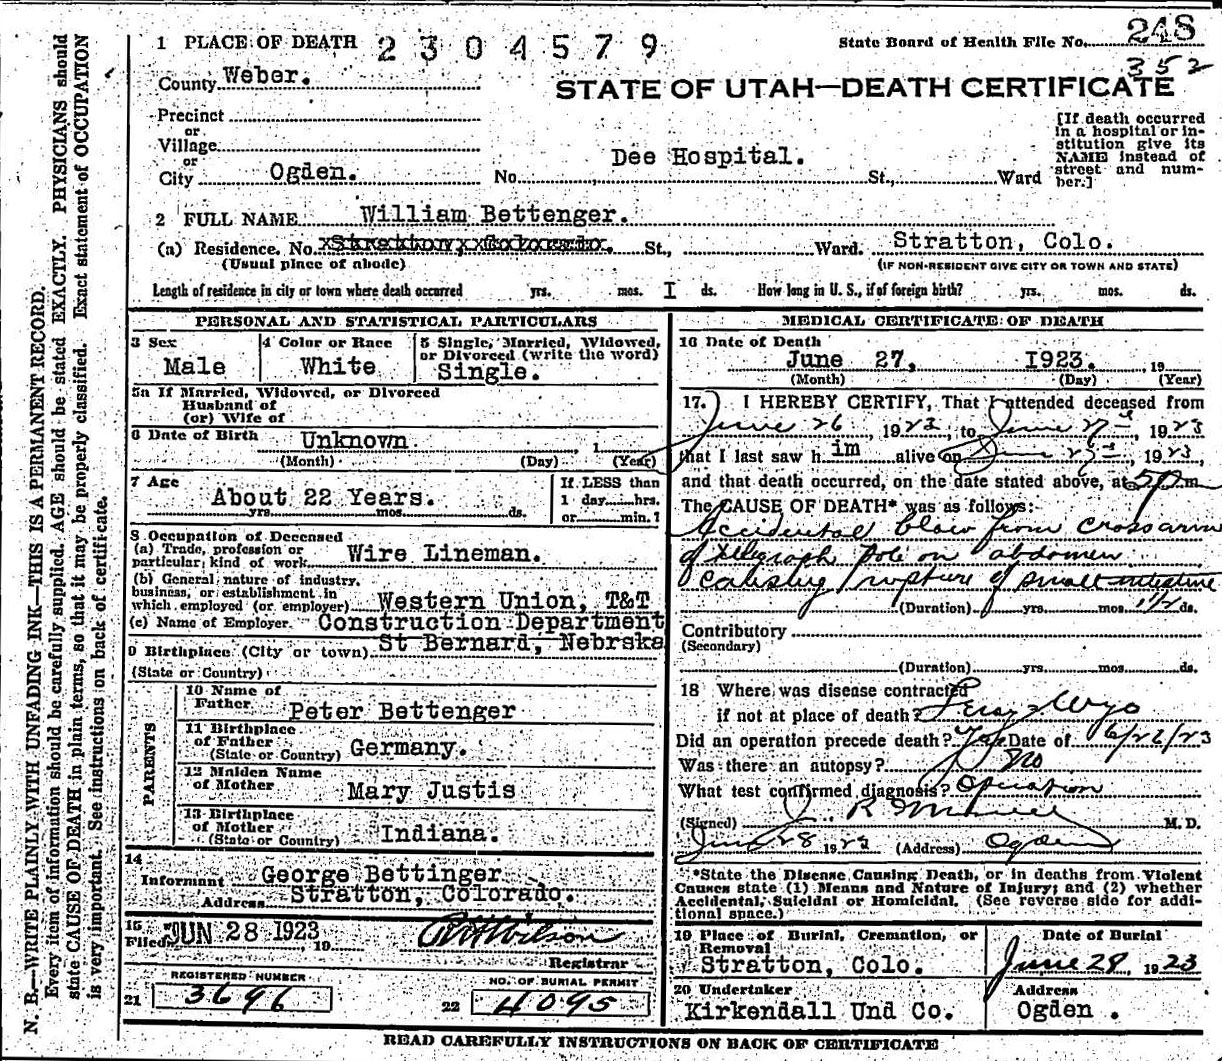 1 PLACE OF DEATH 2304579 State Board of Health File No. 248
352
County Weber.
STATE OF UTAH—DEATH CERTIFICATE
Precinct
or
Village
or
City Ogden. No. Dee Hospital. St., Ward
[If death occurred
in a hospital or in-
stitution give its
NAME instead of
street and num-
ber.]
2 FULL NAME William Bettenger.
(a) Residence. No. St., Ward. Stratton, Colo.
(Usual place of abode) (IF NON-RESIDENT GIVE CITY OR TOWN AND STATE)
Length of residence in city or town where death occurred yrs. mos. I ds. How long in U. S., if of foreign birth? yrs. mos. ds.
PERSONAL AND STATISTICAL PARTICULARS
3 Sex
Male
4 Color or Race
White
5 Single, Married, Widowed,
or Divorced (write the word)
Single.
5a If Married, Widowed, or Divorced
Husband of
(or) Wife of
6 Date of Birth Unknown , 1
(Month) (Day) (Year)
7 Age
About 22 Years.
yrs. mos. ds.
If LESS than
1 day hrs.
or min.?
8 Occupation of Deceased
(a) Trade, profession or
particular kind of work Wire Lineman.
(b) General nature of industry.
business, or establishment in
which employed (or employer) Western Union, T&T
(c) Name of Employer. Construction Department
9 Birthplace (City or town) St Bernard, Nebrska
(State or Country)
PARENTS
10 Name of
Father Peter Bettenger
11 Birthplace
of Father
(State or Country) Germany.
12 Maiden Name
of Mother Mary Justis
13 Birthplace
of Mother
(State or Country) Indiana.
14
Informant George Bettinger
Address Stratton, Colorado.
15
Filed JUN 28 1923 19
Wilson
Registrar
REGISTERED NUMBER
21 3696
NO. OF BURIAL PERMIT
22 4095
MEDICAL CERTIFICATE OF DEATH
16 Date of Death
June 27, 1923. , 19
(Month) (Day) (Year)
17. I HEREBY CERTIFY, That I attended deceased from
June 26, 1923, to June 27, 1923
that I last saw him alive on June 27, 1923,
and that death occurred, on the date stated above, at 5 p m
The CAUSE OF DEATH* was as follows:
Accidental blow from crossarm
of telegraph pole on abdomen
causing rupture of small intestine
(Duration) yrs. mos. 1½ ds.
Contributory
(Secondary)
(Duration) yrs. mos. ds.
18 Where was disease contracted
if not at place of death? Wyo
Did an operation precede death? Yes Date of 6/26/23
Was there an autopsy? No
What test confirmed diagnosis? Operation
(Signed) M.D.
June 28 1923 (Address) Ogden
*State the Disease Causing Death, or in deaths from Violent
Causes state (1) Means and Nature of Injury; and (2) whether
Accidental, Suicidal or Homicidal. (See reverse side for addi-
tional space.)
19 Place of Burial, Cremation, or
Removal
Stratton, Colo.
Date of Burial
June 28, 1923
20 Undertaker
Kirkendall Und Co.
Address
Ogden .
READ CAREFULLY INSTRUCTIONS ON BACK OF CERTIFICATE
N. B.—WRITE PLAINLY WITH UNFADING INK—THIS IS A PERMANENT RECORD.
Every item of information should be carefully supplied. AGE should be stated EXACTLY. PHYSICIANS should
state CAUSE OF DEATH in plain terms, so that it may be properly classified. Exact statement of OCCUPATION
is very important. See instructions on back of certificate.